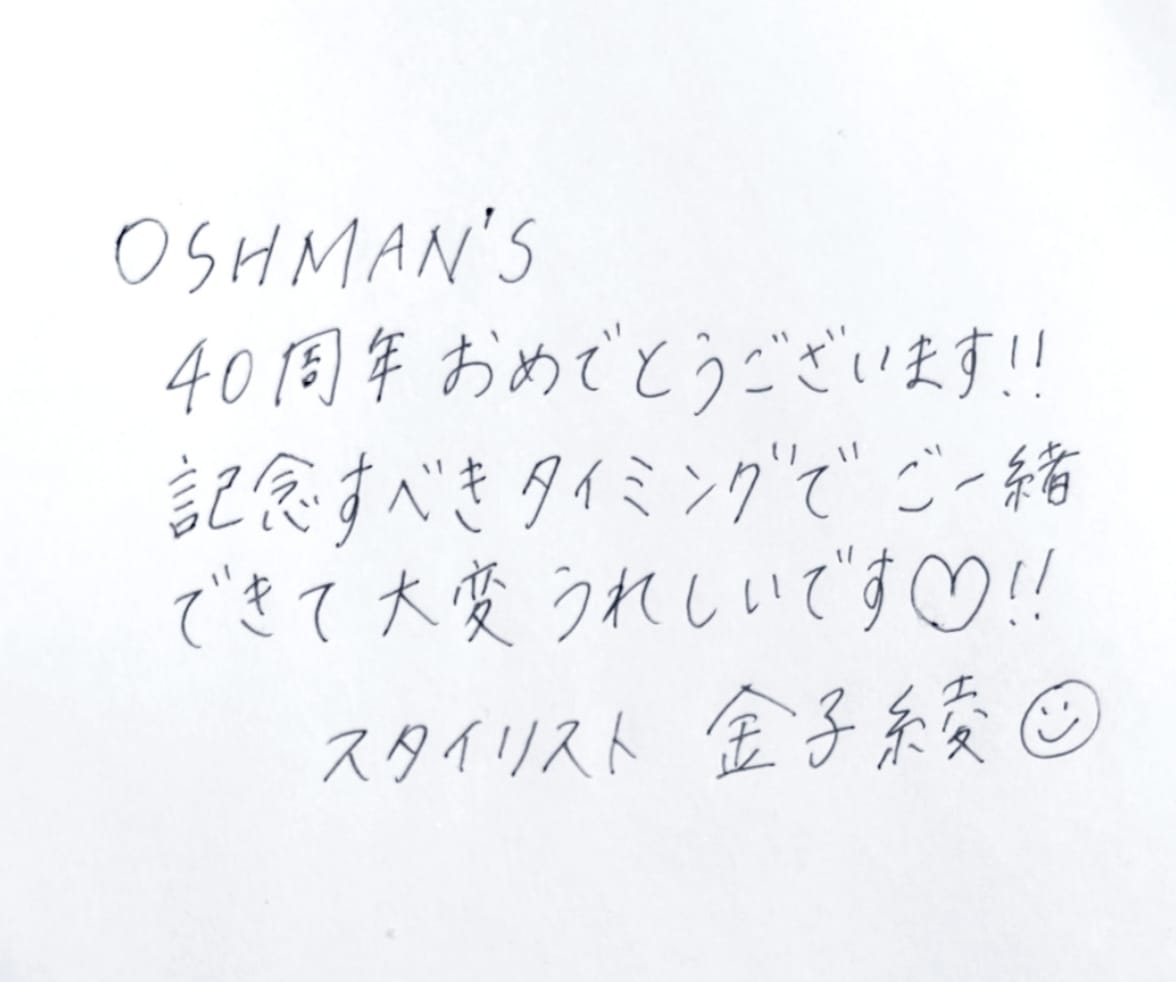 OSHMAN'S
40周年 おめでとうございます!!
記念すべきタイミングで ご一緒
できて 大変 うれしいです♡!!
スタイリスト 金子綾☺